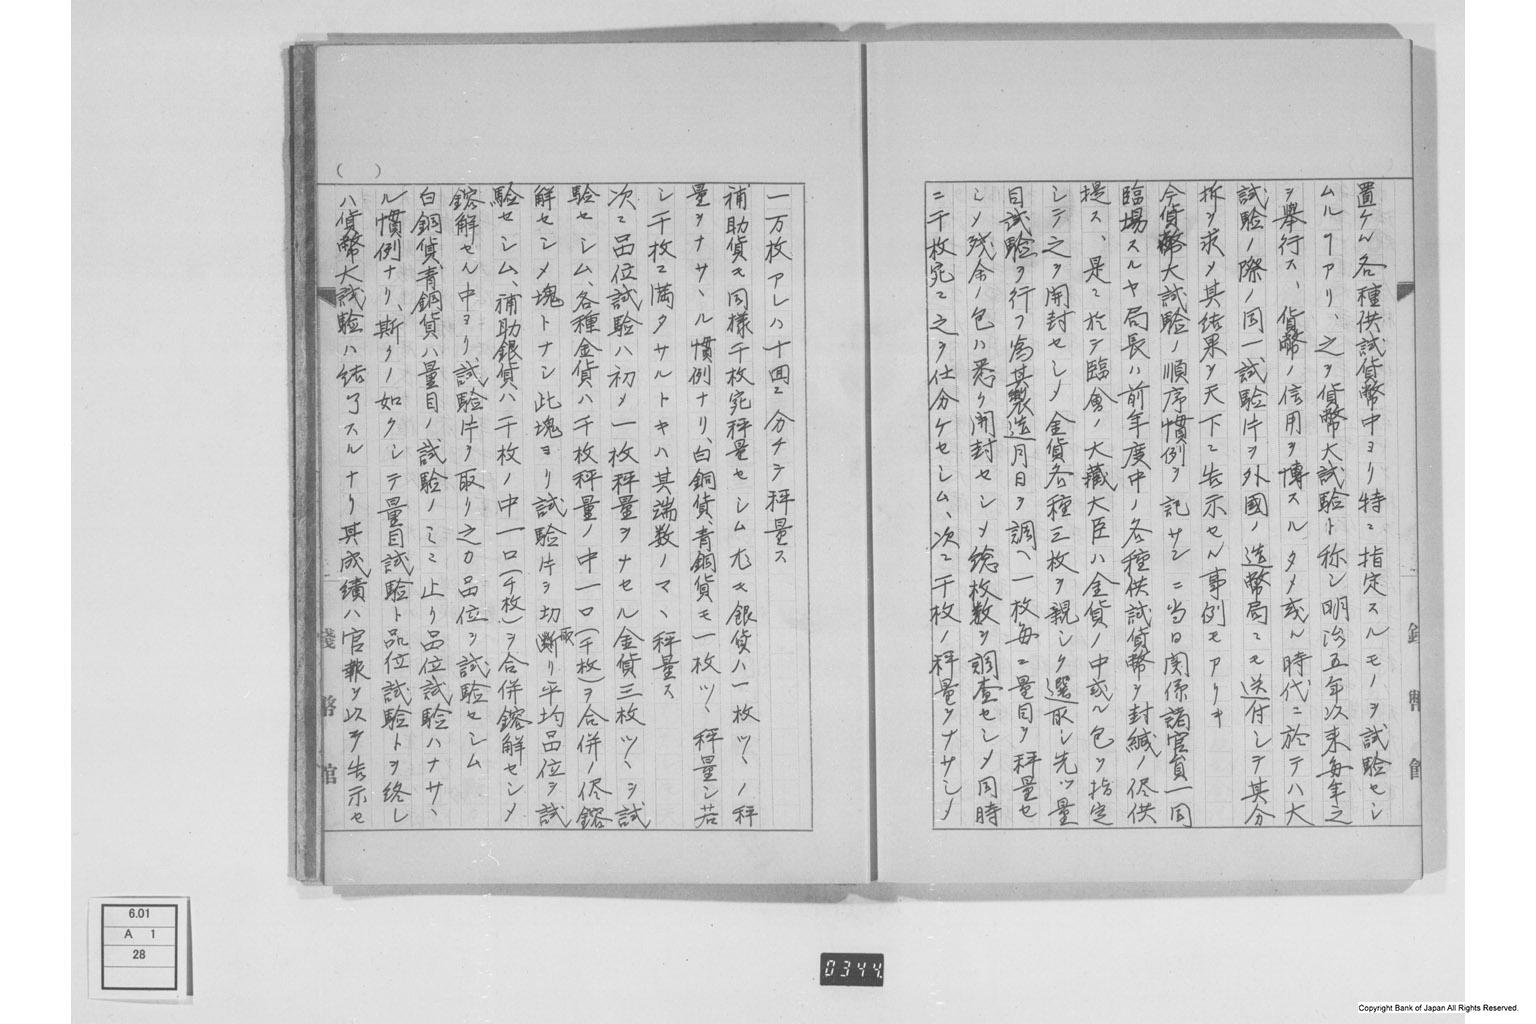 置ケル各種供試貨幣中ヨリ特ニ指定スルモノヲ試験セシ
ムルヿアリ、之ヲ貨幣大試験ト称シ明治五年次来毎年之
ヲ舉行ス、貨幣ノ信用ヲ博スルタメ或ル時代ニ於テハ大
試験ノ際ノ同一試験片ヲ外國ノ造幣局ニモ送付シテ其分
析ヲ求メ其結果ヲ天下ニ告示セル事例モアリキ
今貨幣大試験ノ順序慣例ヲ記サンニ当日関係諸官員一同
臨場スルヤ局長ハ前年度中ノ各種供試貨幣ヲ封緘ノ侭供
提ス、是ニ於テ臨會ノ大藏大臣ハ金貨ノ中或ル包ヲ指定
シテ之ヲ開封セシメ金貨各種三枚ヲ親シク選取シ先ツ量
目試験ヲ行フ為其製造月日ヲ調ヘ一枚毎ニ量目ヲ秤量セ
シメ残余ノ包ハ悉ク開封セシメ総枚数ヲ調査セシメ同時
ニ千枚宛ニ之ヲ仕分ケセシム、次ニ千枚ノ秤量ヲナサシメ
一万枚アレハ十回ニ分チテ秤量ス
補助貨モ同様千枚宛秤量セシム尤モ銀貨ハ一枚ツヽノ秤
量ヲナサヽル慣例ナリ、白銅貨、青銅貨モ一枚ツヽ秤量シ若
シ千枚ニ満タサルトキハ其端数ノマヽ秤量ス
次ニ品位試験ハ初メ一枚秤量ヲナセル金貨三枚ツヽヲ試
験セシム、各種金貨ハ千枚秤量ノ中一口(千枚)ヲ合併ノ侭鎔
解セシメ塊トナシ此塊ヨリ試験片ヲ切断取リ平均品位ヲ試
験セシム、補助銀貨ハ千枚ノ中一口(千枚)ヲ合併鎔解セシメ
鎔解セル中ヨリ試験片ヲ取リ之カ品位ヲ試験セシム
白銅貨、青銅貨ハ量目ノ試験ノミニ止リ品位試験ハナサヽ
ル慣例ナリ、斯クノ如クシテ量目試験ト品位試験トヲ終レ
ハ貨幣大試験ハ結了スルナリ其成績ハ官報ヲ以テ告示セ
錢幣館
錢幣館
( )
6.01
A 1
28
0344.
Copyright Bank of Japan All Rights Reserved.